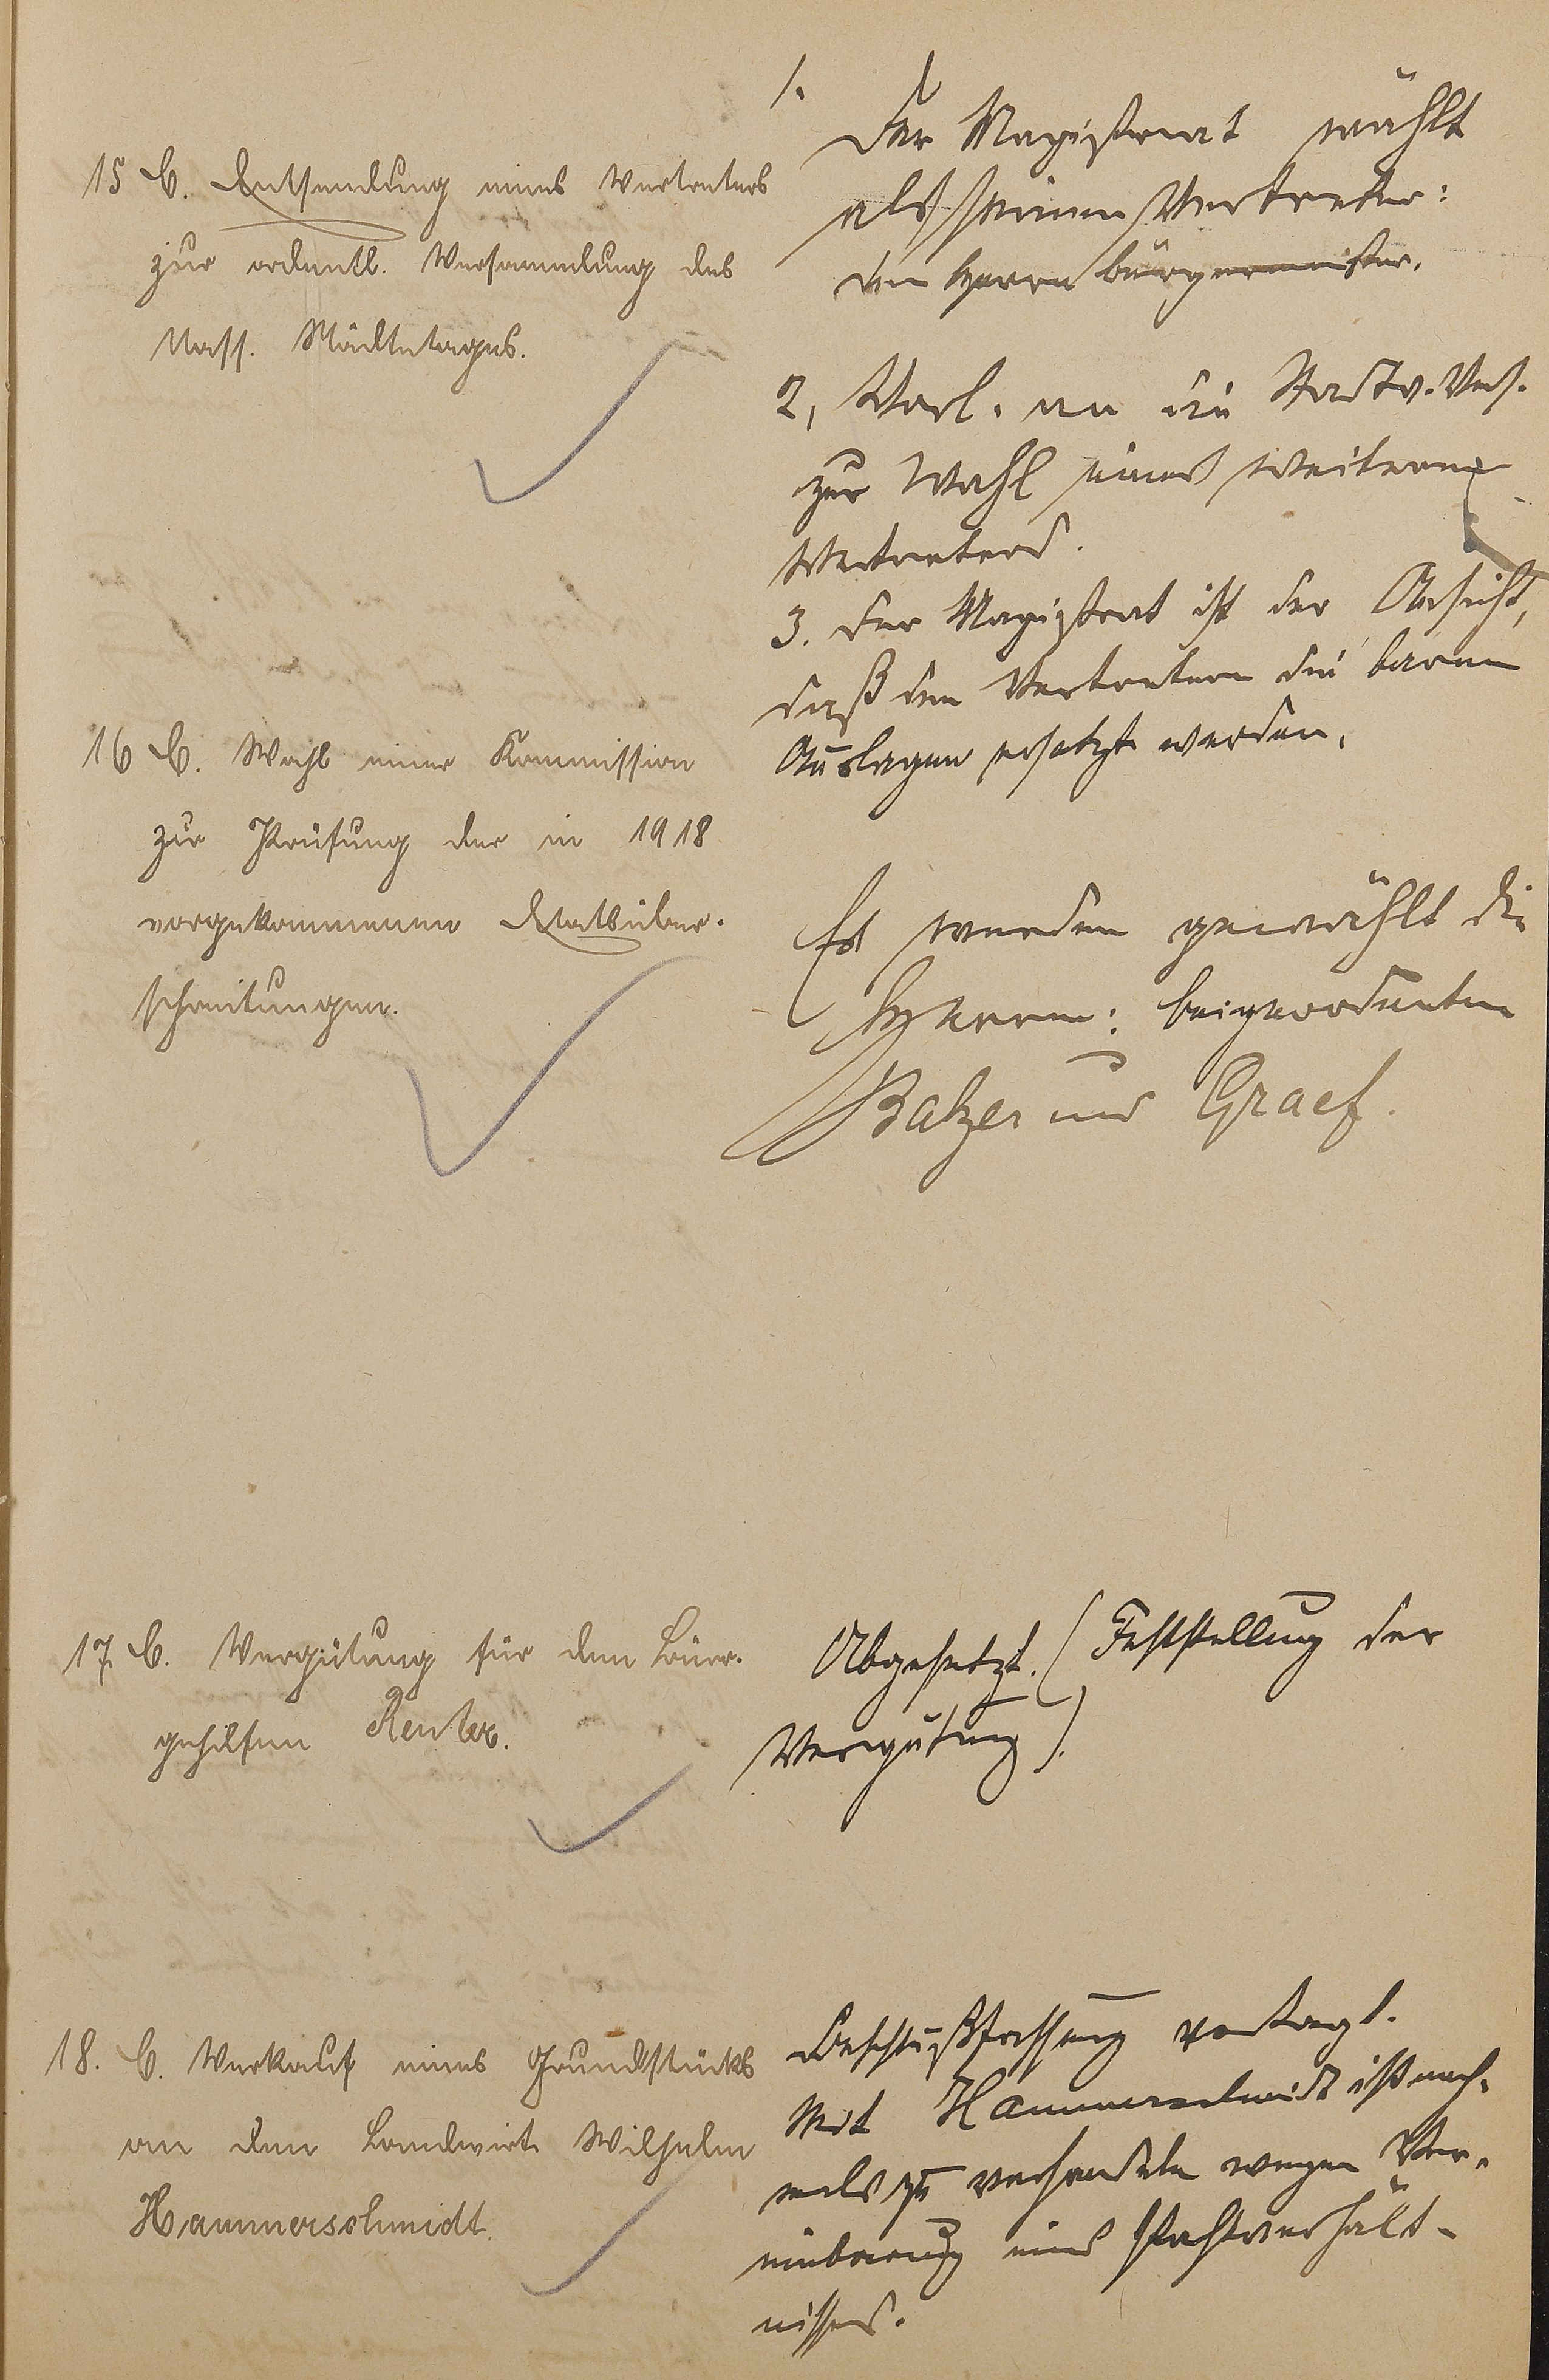 15 C. Entsendung eines Vertreters
zur ordentl. Versammlung des
Nass. Städtetages.
1. Der Magistrat wählt
als seinen Vertreter:
den Herrn Bürgermeister.
2, Vorl. an die Stadtv. Vers.
zur Wahl eines weiteren
Vertreters.
3. Der Magistrat ist der Ansicht,
daß den Vertretern die baren
Auslagen ersetzt werden.
16 C. Wahl einer Kommission
zur Prüfung der in 1918
vorgekommenen Etatsüber-
schreitungen.
Es werden gewählt die
Herren: Beigeordneten
Balzer und Graef.
17. C. Vergütung für den Büro-
gehilfen Reuter.
Abgesetzt. (Feststellung der
Vergütung).
18. C. Verkauf eines Grundstücks
an den Landwirt Wilhelm
Hammerschmidt.
Beschlußfassung vertagt.
Mit Hammerschmidt ist noch-
mals zu verhandeln wegen Ver-
einbarung eines Pachtverhält-
nisses.